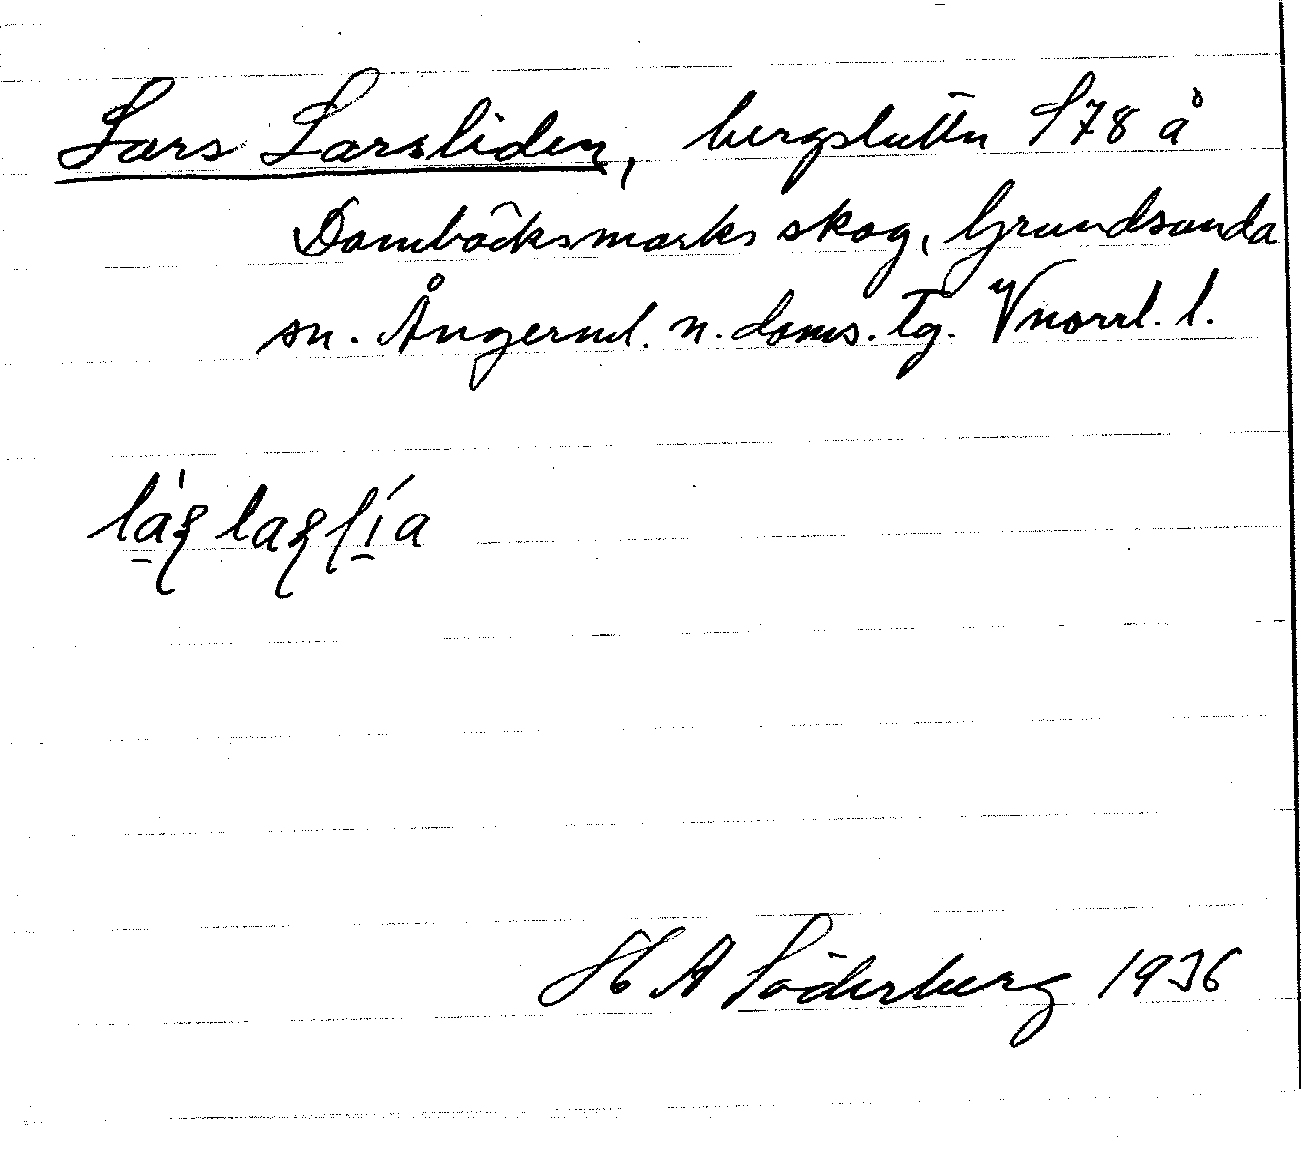 Lars Larsliden, bergsluttn S78 å
Dombäcksmarks skog, Grundsunda
sn. Ångerml. n. doms. tg. Vnorrl. l.
H A Söderberg 1936